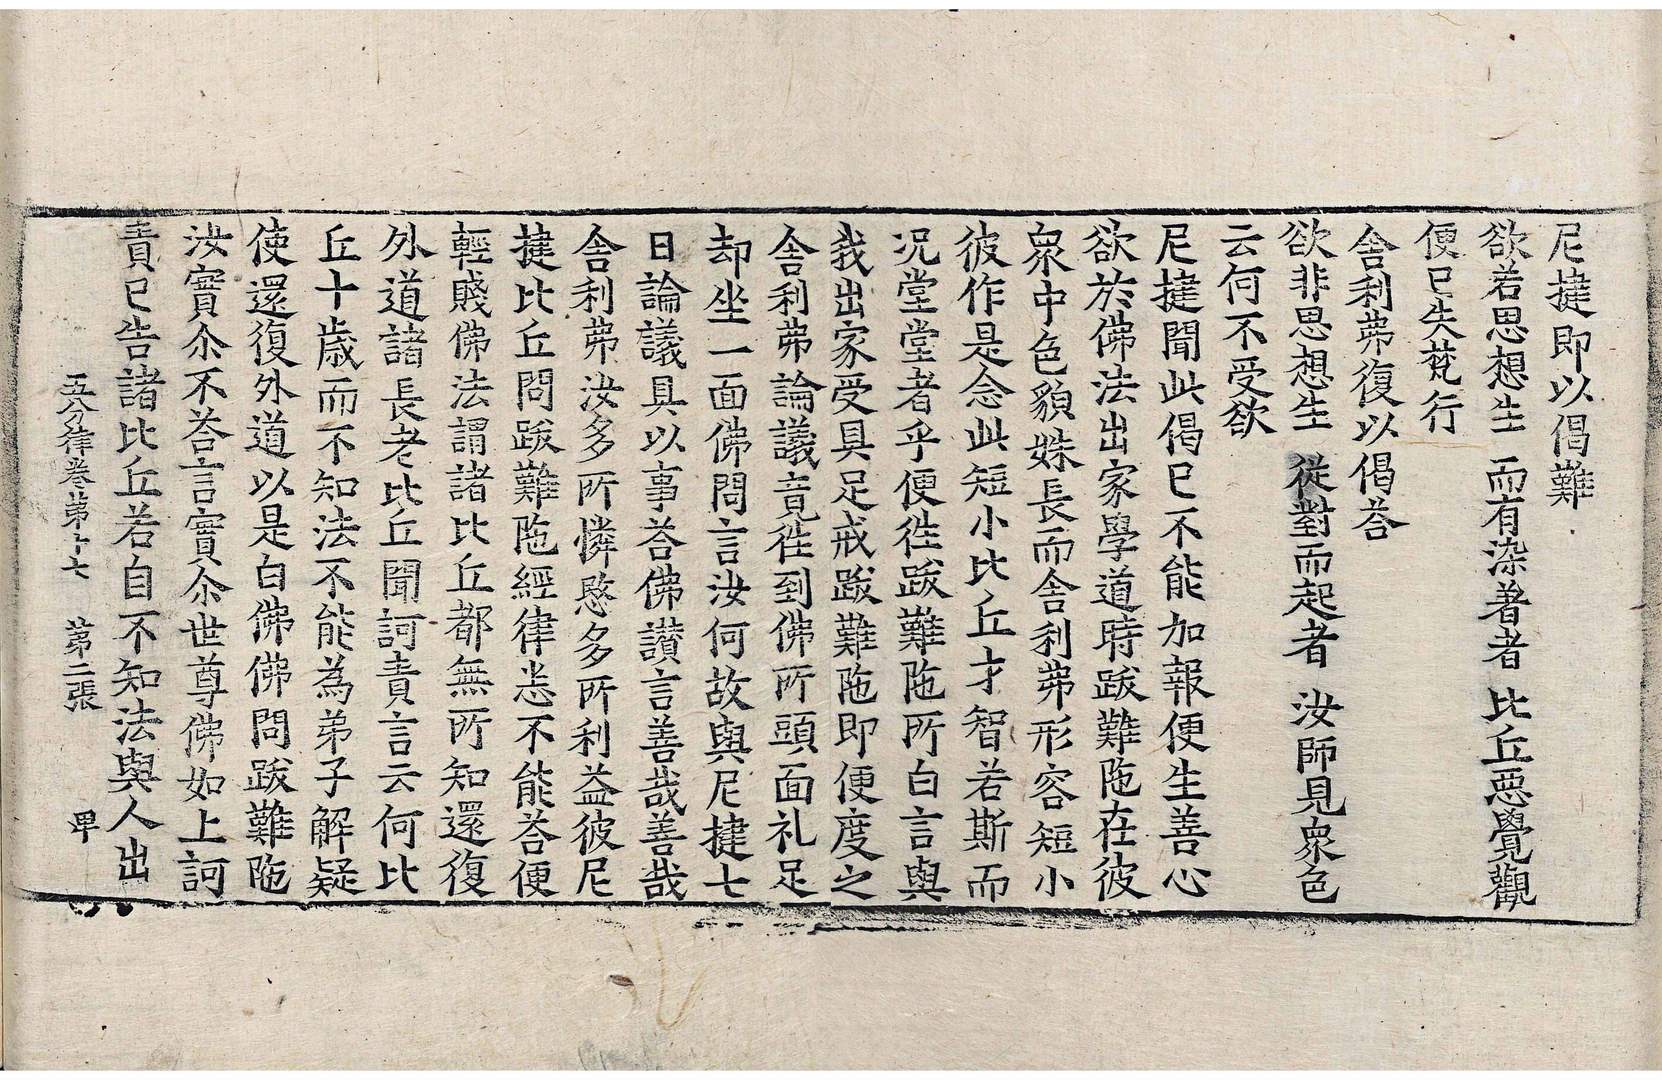 尼揵即以偈難
欲若思想生　而有染著者　比丘惡覺觀
便已失梵行
舍利弗復以偈荅
欲非思想生　從對而起者　汝師見衆色
云何不受欲
尼揵聞此偈已不能加報便生善心
欲於佛法出家學道時跋難陁在彼
衆中色貌姝長而舍利弗形容短小
彼作是念此短小比丘才智若斯而
况堂堂者乎便徃跋難陁所白言與
我出家受具足戒跋難陁即便度之
舍利弗論議竟徃到佛所頭面礼足
却坐一面佛問言汝何故與尼揵七
日論議具以事荅佛讃言善哉善哉
舍利弗汝多所憐愍多所利益彼尼
揵比丘問跋難陁經律恙不能荅便
輕賤佛法謂諸比丘都無所知還復
外道諸長老比丘聞訶責言云何比
丘十歳而不知法不能為弟子解疑
使還復外道以是白佛佛問跋難陁
汝實尒不荅言實尒世尊佛如上訶
責已告諸比丘若自不知法與人出
五分律卷第十七　第二張　卑